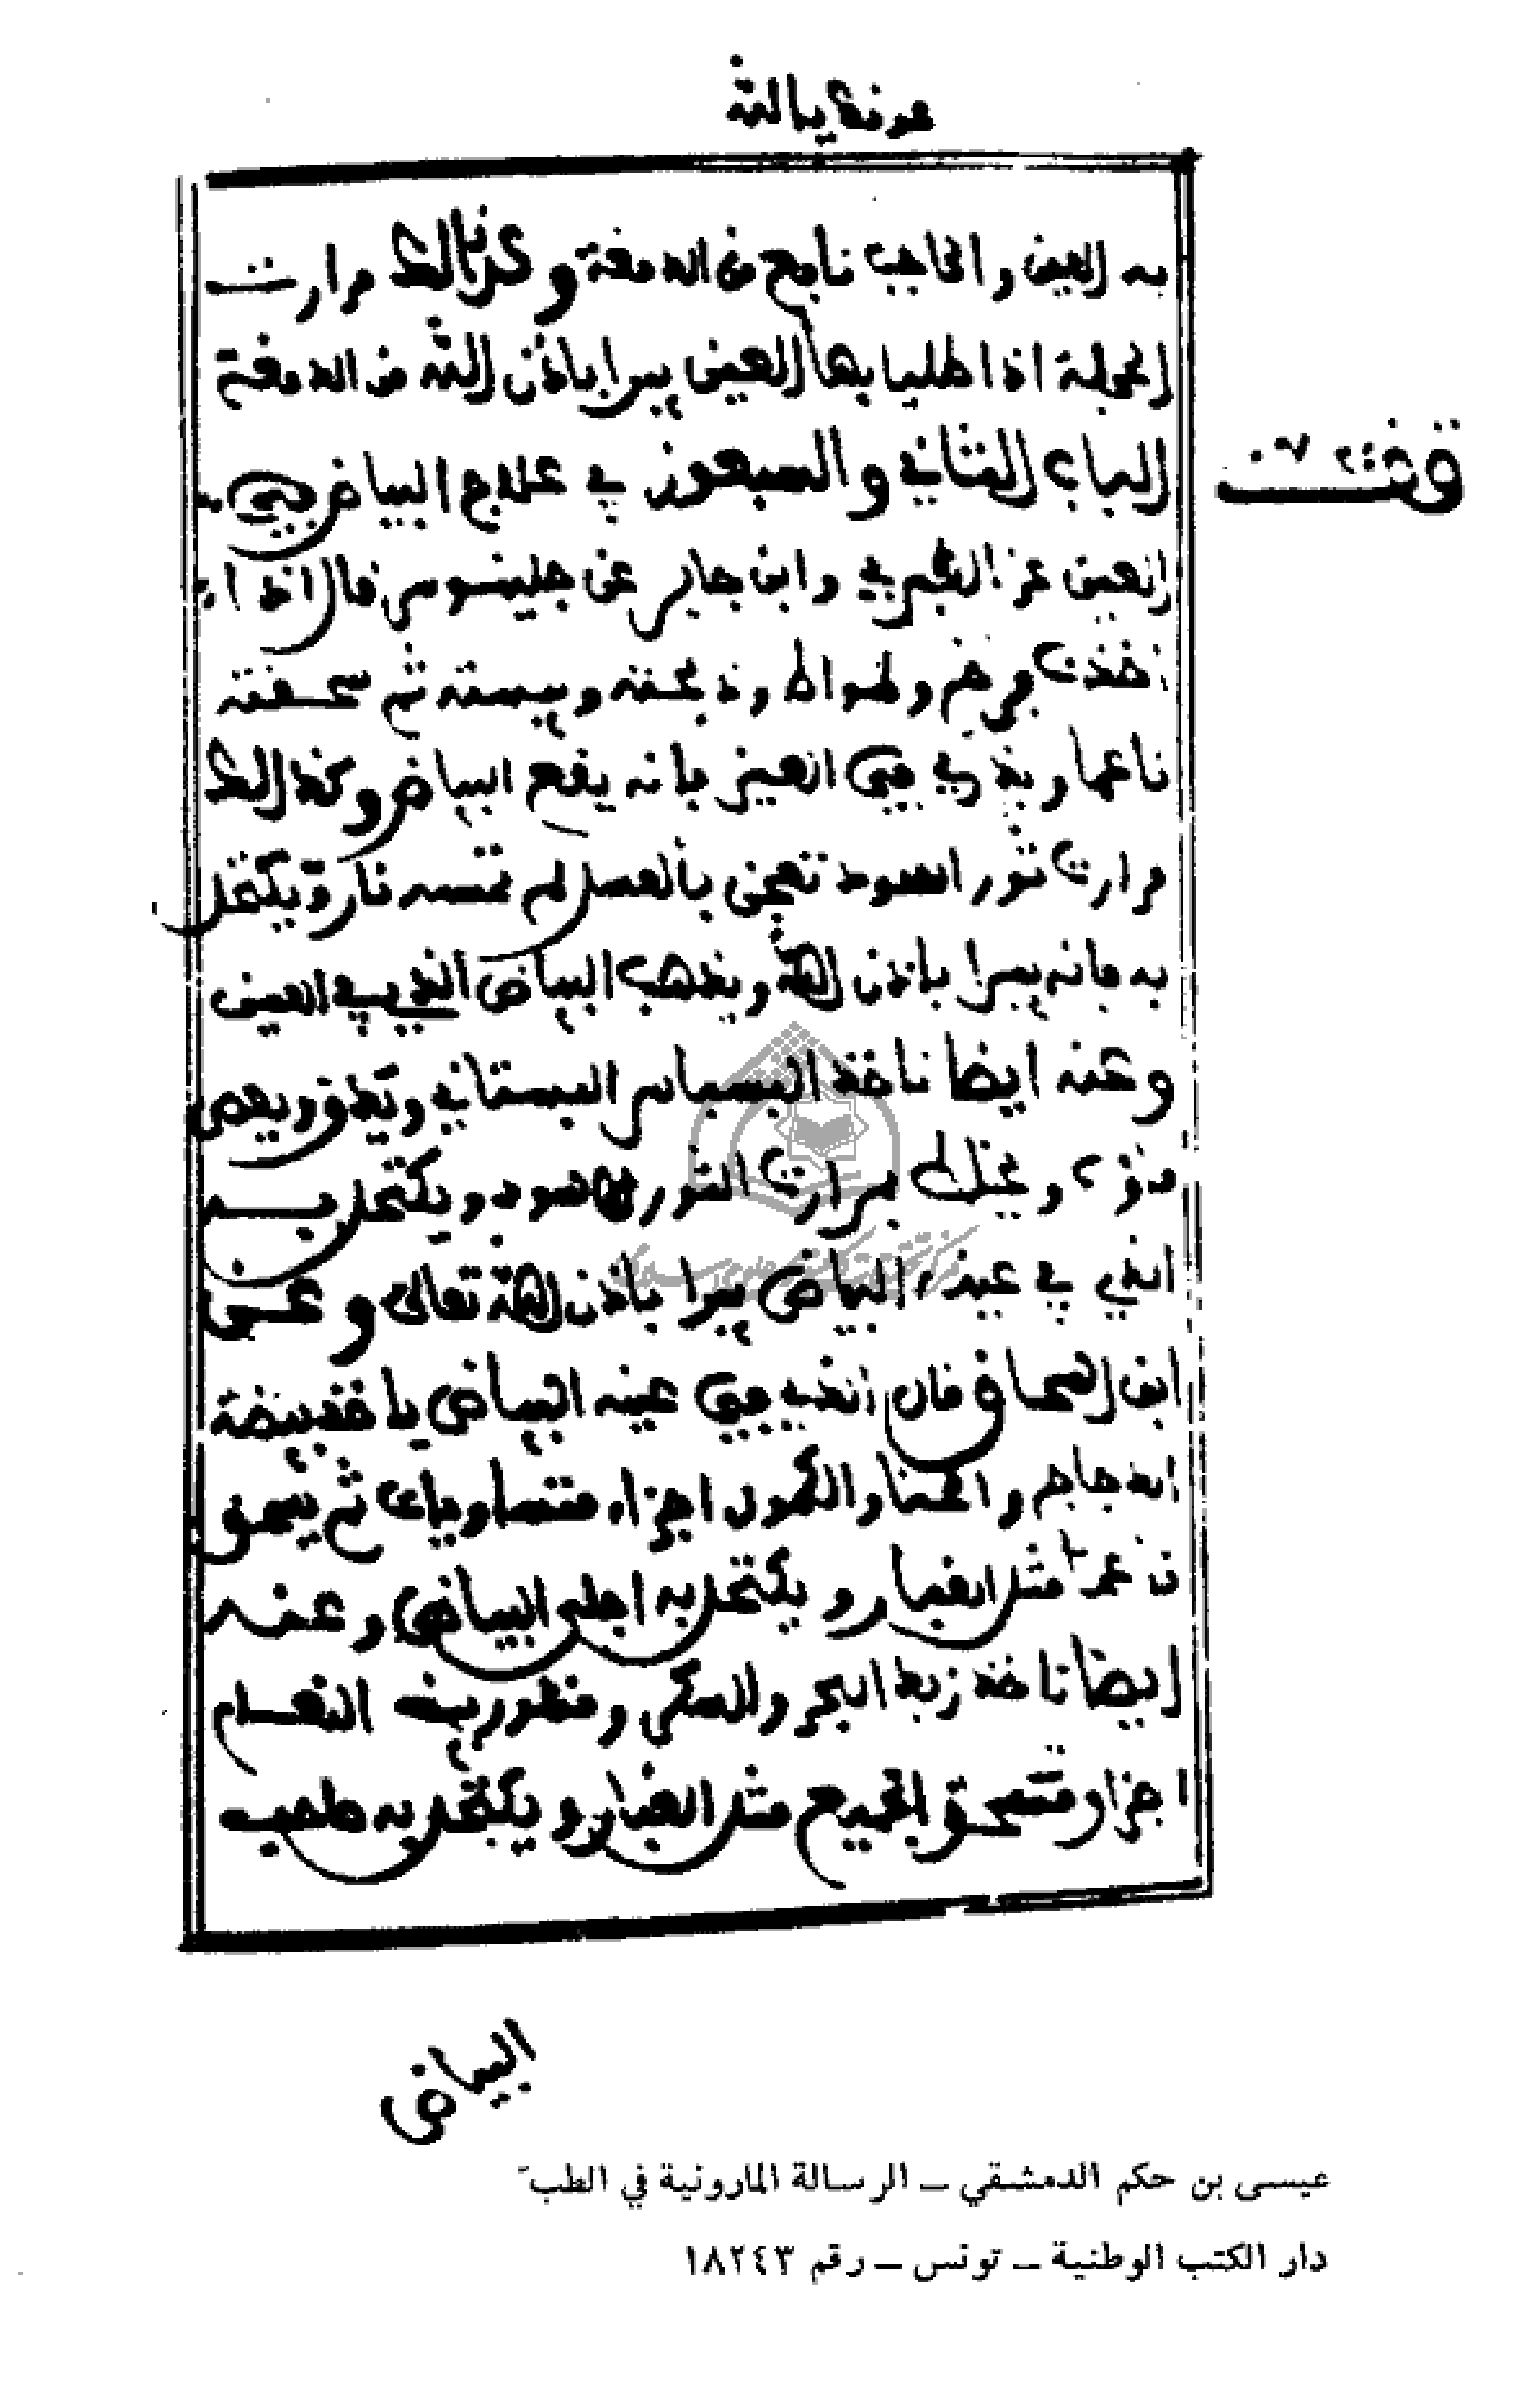 عونك يا الله
به العين والحاجب نابع من الدمعة وكذالك مرارت
الحجلة اذا طليا بها العين يبرا باذن الله من الدمعة
الباب الثاني والسبعون في علاج البياض في
العين عن وابن جابر عن جلينوس فال اذا
ذبحته ويبسته ثم سحفته
ناعما في العين بانه يفع البياض وكذالك
مرارت ثور اسود تعجن بالعسل لم تمسه نار ويكتحل
به بانه يبرا باذن الله ويذهب البياض الذي في العين
وعنه ايضا ناخذ البسباس البستاني
بمرارت الثور الاسود ويكتحل به
الذي في عينه البياض يبرا باذن الله تعالى وعن
ابن فال الذي في عينه البياض ياخذ بيضة
الدجاج والحنا والكمون اجزاء متساويات ثم يسحق
ناعما مثل الغبار ويكتحل به اجلى البياض وعنه
ايضا ناخذ زبد البحر والسكر النعام
اجزا وتسحق الجميع مثل الغبار ويكتحل به صاحب
البياض
عيسى بن حكم الدمشقي ــ الرسالة المارونية في الطب
دار الكتب الوطنية ــ تونس ــ رقم ١٨٢٤٣